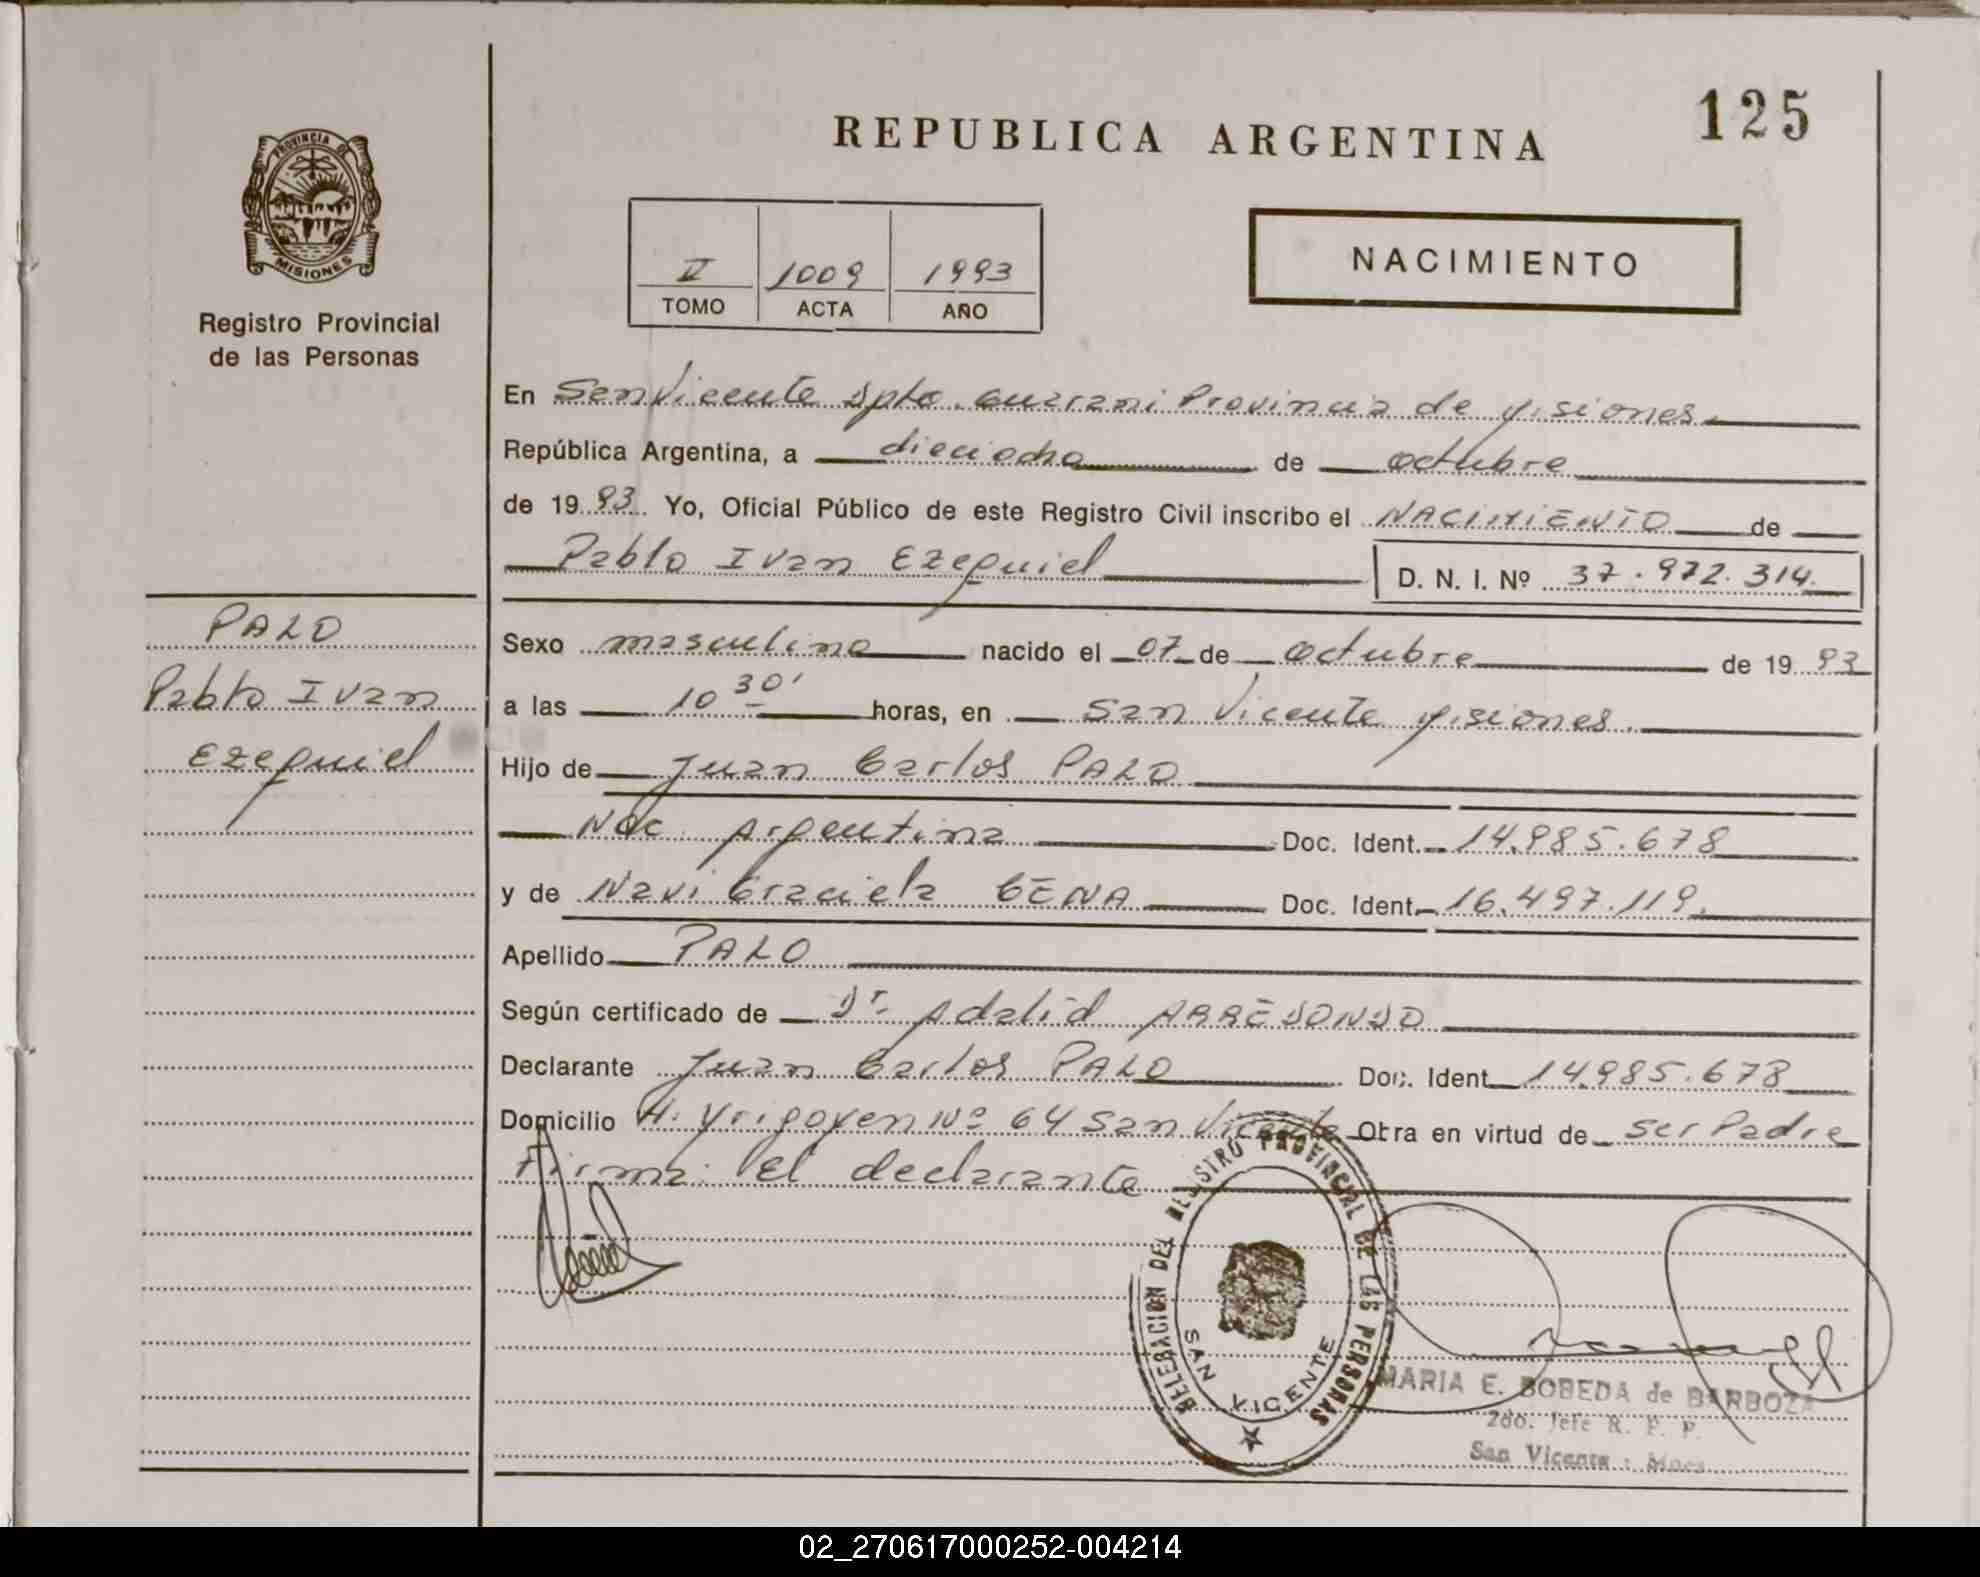 REPUBLICA ARGENTINA
125
PROVINCIA DE
MISIONES
Registro Provincial
de las Personas
V 1009 1993
TOMO ACTA AÑO
NACIMIENTO
En San Vicente Dpto. Guarani Provincia de Misiones.
República Argentina, a dieciocho de octubre
de 1993 Yo, Oficial Público de este Registro Civil inscribo el NACIMIENTO de
Pablo Ivan Ezequiel D. N. I. Nº 37.972.314.
PALO
Pablo Ivan
Ezequiel
Sexo masculino nacido el 07 de octubre de 1993
a las 10 30' horas, en San Vicente Misiones.
Hijo de Juan Carlos PALO
Nac. Argentina Doc. Ident. 14.985.678
y de Navi Graciela CENA Doc. Ident. 16.497.119.
Apellido PALO
Según certificado de Dr. Adalid ARREDONDO
Declarante Juan Carlos PALO Doc. Ident 14.985.678
Domicilio H. Yrigoyen Nº 64 San Vicente Obra en virtud de ser Padre
Firma: El declarante
DELEGACION DEL REGISTRO PROVINCIAL DE LAS PERSONAS
SAN VICENTE
MARIA E. BOBEDA de BARBOZA
2do. Jefe R. P. P.
San Vicente - Mnes
02_270617000252-004214